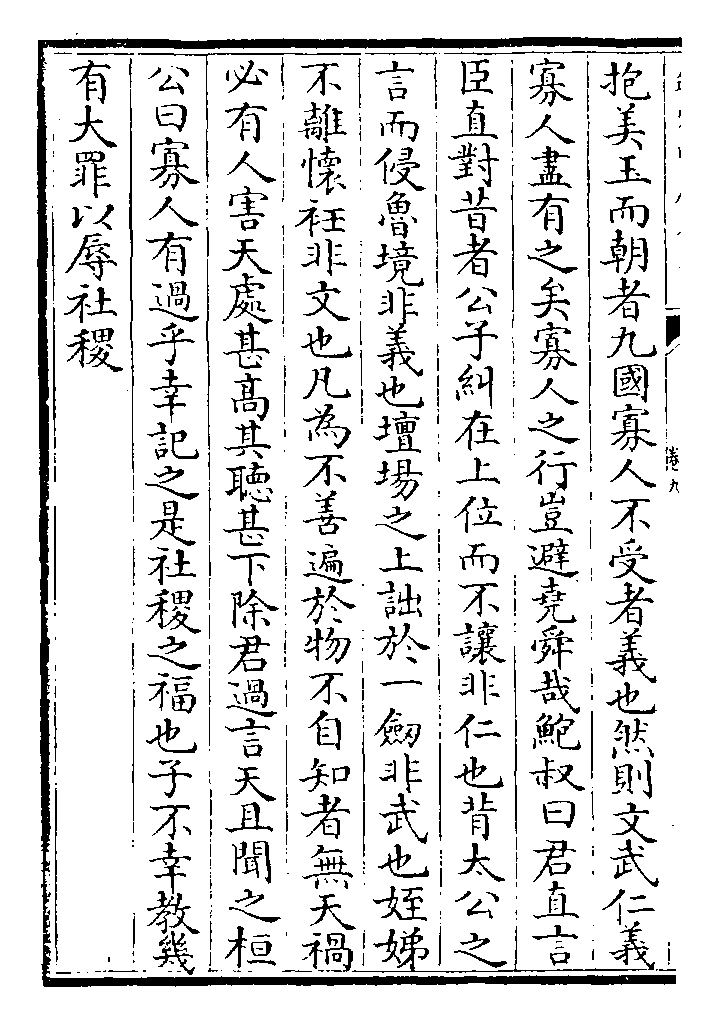 抱美玉而朝者九國寡人不受者義也然則文武仁義
寡人盡有之矣寡人之行豈避堯舜哉鮑叔曰君直言
臣直對昔者公子糾在上位而不讓非仁也背太公之
言而侵魯境非義也壇場之上詘於一劔非武也姪娣
不離懷衽非文也凡為不善遍於物不自知者無天禍
必有人害天處甚髙其聽甚下除君過言天且聞之桓
公曰寡人有過乎幸記之是社稷之福也子不幸教幾
有大罪以辱社稷
卷九